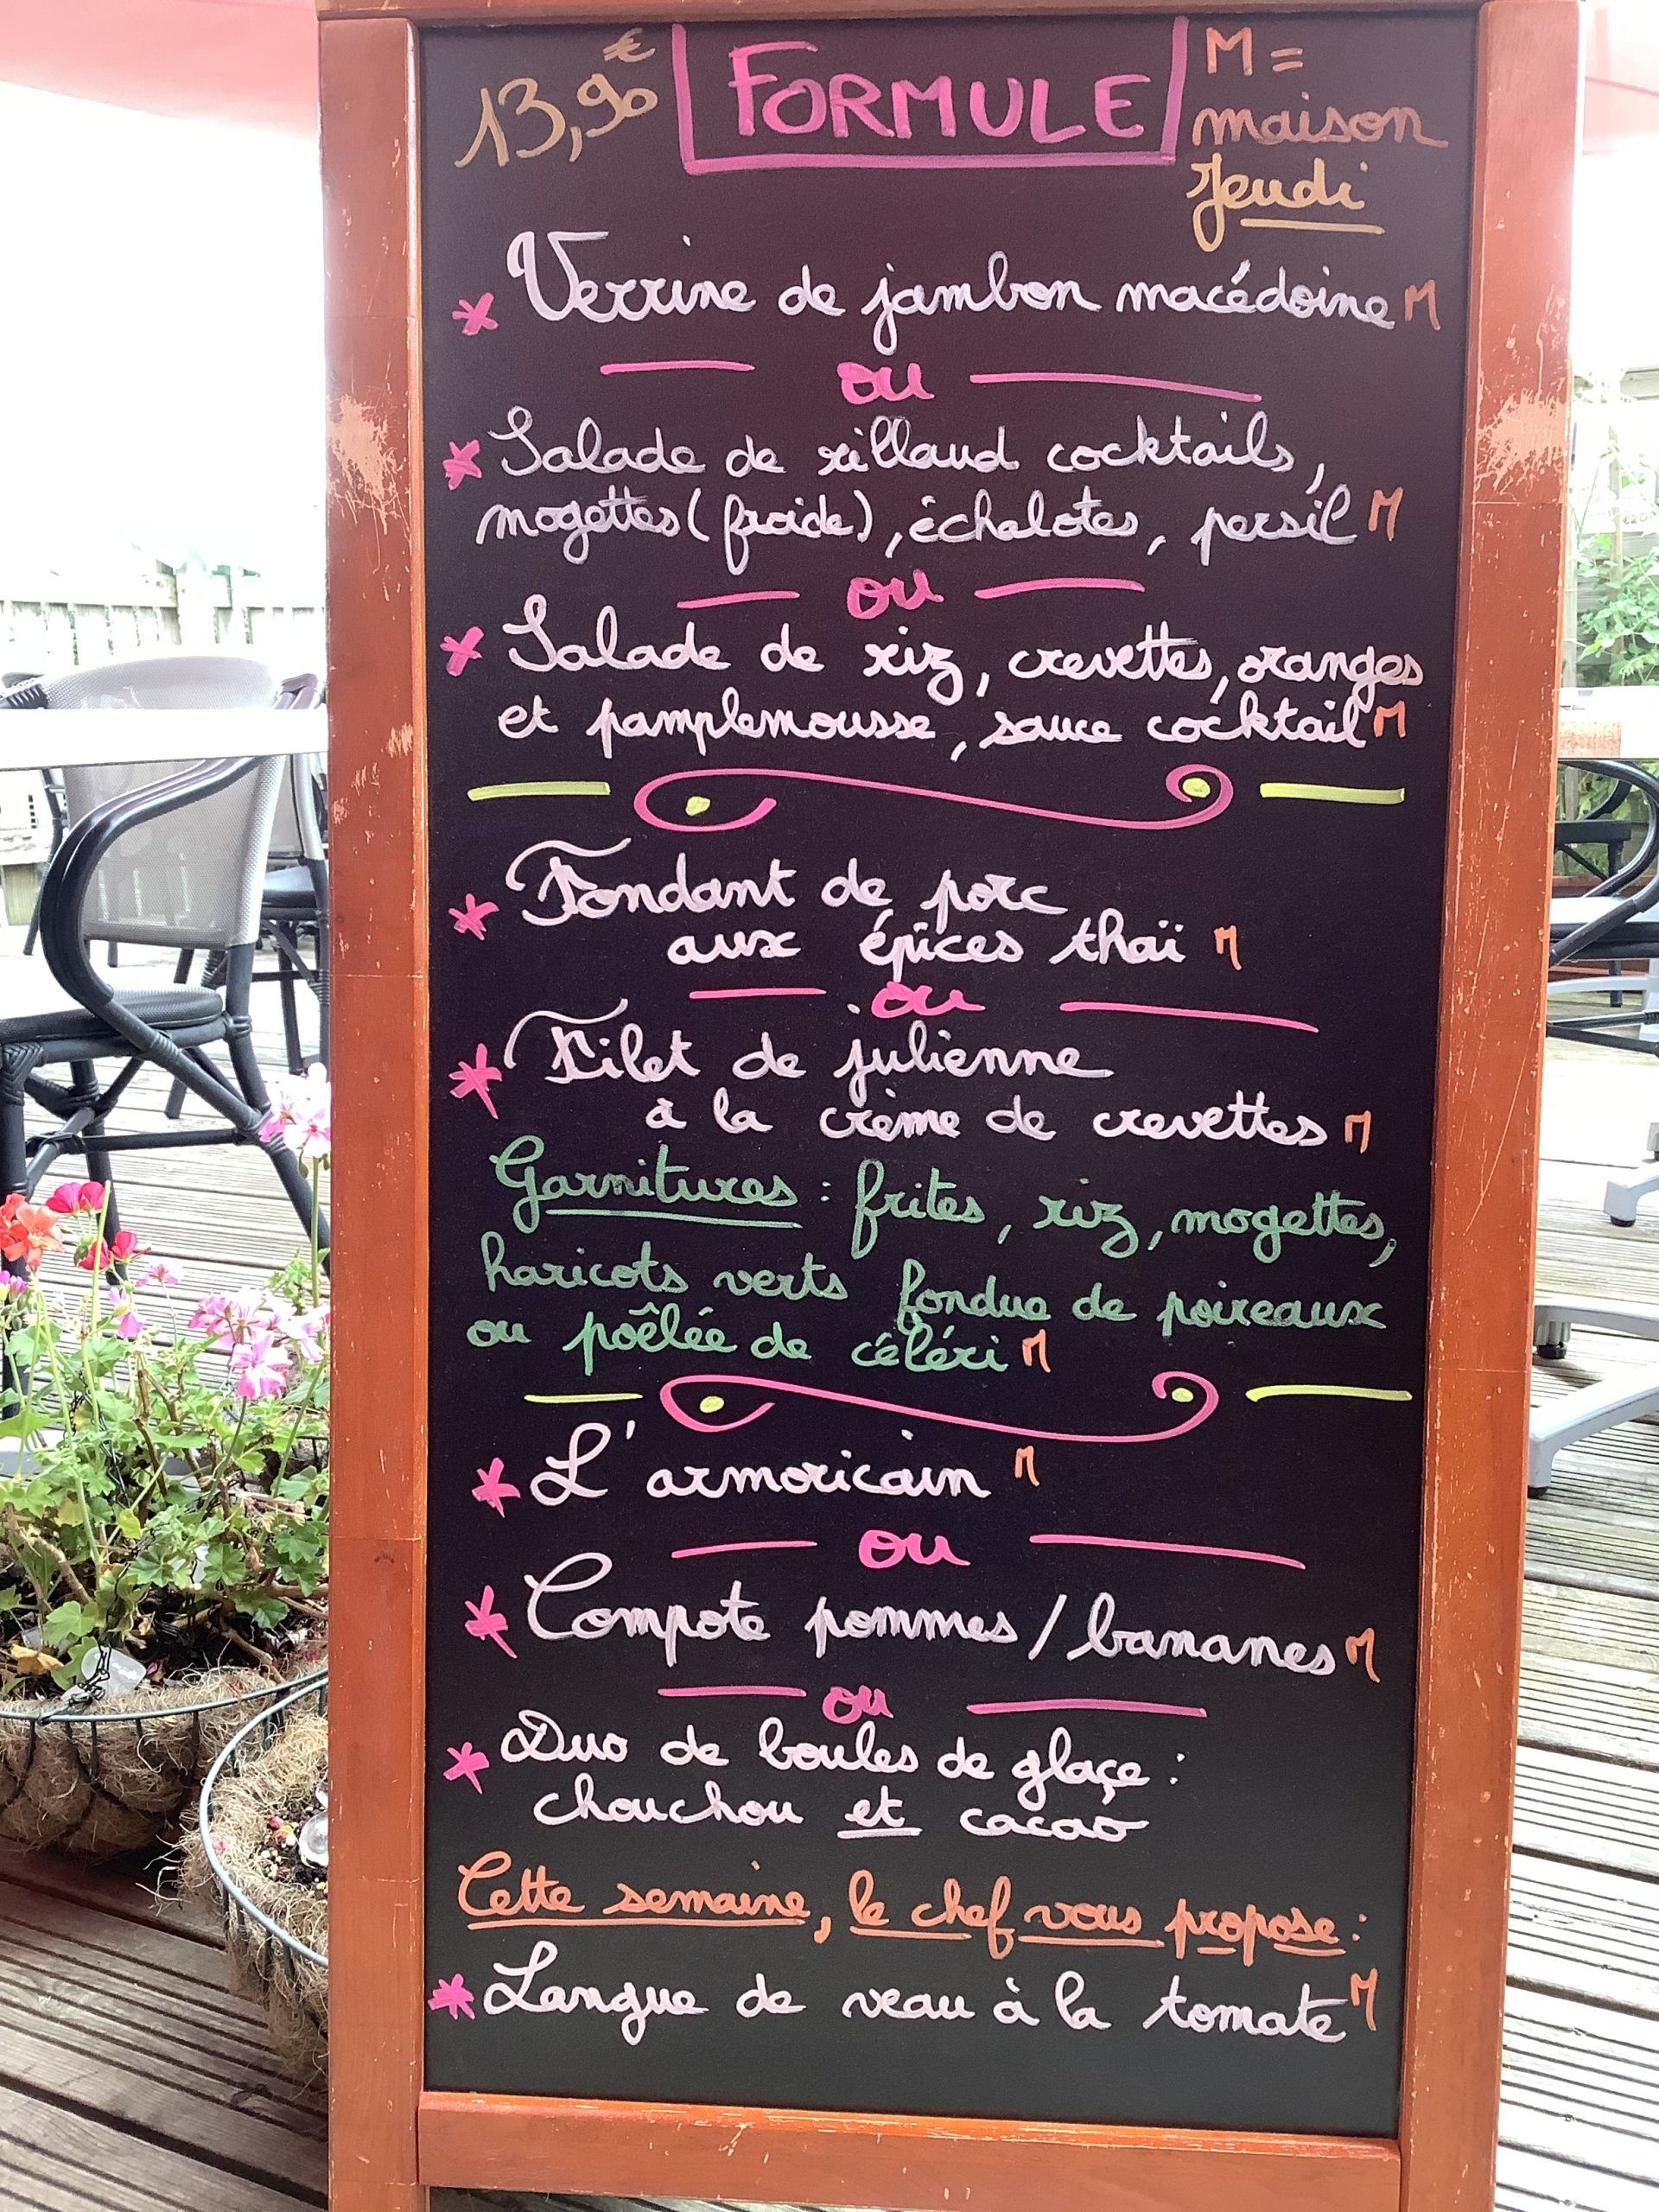 13,90€ FORMULE M =
maison
Jeudi
* Verrine de jambon macédoine M
ou
* Salade de rillaud cocktails,
mogettes (froide), échalotes, persil M
ou
* Salade de riz, crevettes, oranges
et pamplemousse, sauce cocktail M
* Fondant de porc
aux épices thaï M
ou
* Filet de julienne
à la crème de crevettes M
Garnitures : frites, riz, mogettes,
haricots verts fondue de poireaux
ou poêlée de céléri M
* L'armoricain M
ou
* Compote pommes / bananes M
ou
* Duo de boules de glaçe :
chouchou et cacao
Cette semaine, le chef vous propose :
* Langue de veau à la tomate M